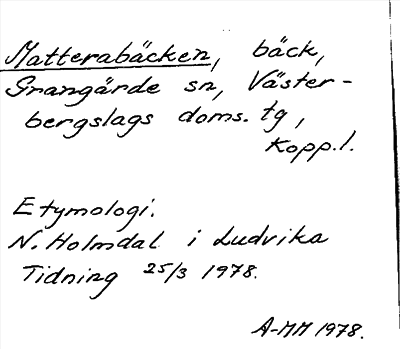 Matterabäcken, bäck,
Grangärde sn, Väster-
bergslags doms. tg,
Kopp.l.
Etymologi.
N. Holmdal i Ludvika
Tidning 25/3 1978.
A-MM 1978.